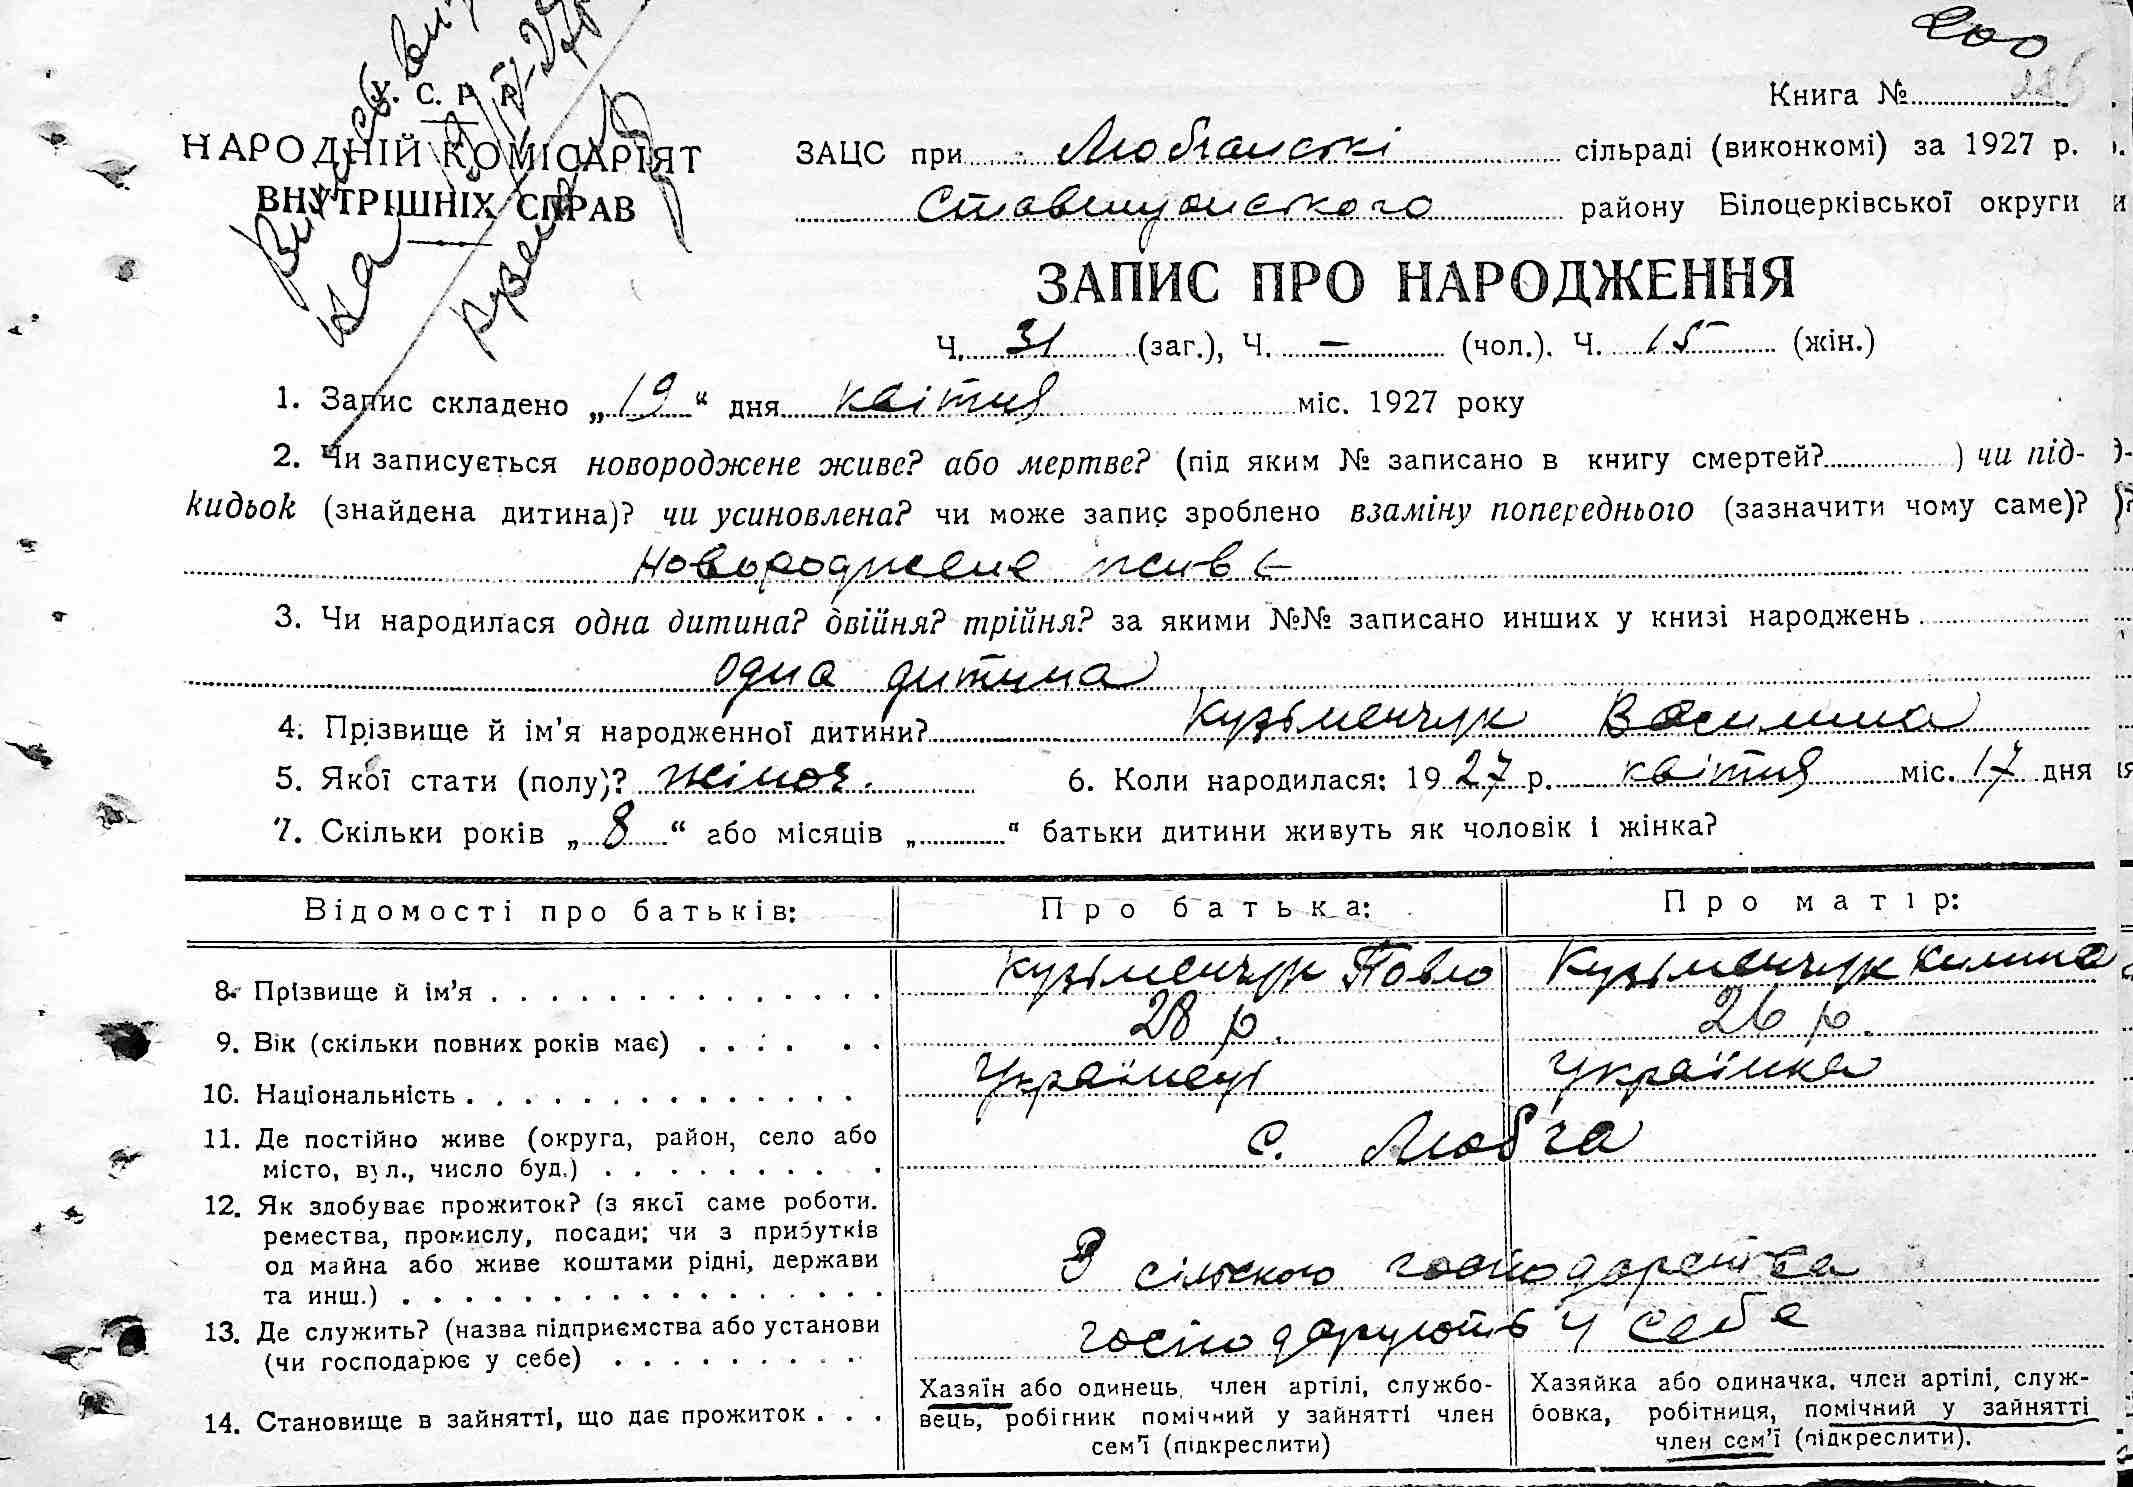 200
У. С. Р. Р.
Книга №
НАРОДНІЙ КОМІСАРІЯТ
ВНУТРІШНІХ СПРАВ
ЗАЦС при Любчанскі сільраді (виконкомі) за 1927 р.
Ставищанського району Білоцерківської округи
ЗАПИС ПРО НАРОДЖЕННЯ
Ч. 31 (заг.), Ч. — (чол.). Ч. 15 (жін.)
1. Запис складено „19“ дня квітня міс. 1927 року
2. Чи записується новороджене живе? або мертве? (під яким № записано в книгу смертей? ) чи під-
кидьок (знайдена дитина)? чи усиновлена? чи може запис зроблено взаміну попереднього (зазначити чому саме)?
новороджене живе
3. Чи народилася одна дитина? двійня? трійня? за якими №№ записано инших у книзі народжень
одна дитина
4. Прізвище й ім’я народженної дитини? Кузьменчук Василина
5. Якої стати (полу)? жіноч. 6. Коли народилася: 1927 р. квітня міс. 17 дня
7. Скільки років „8“ або місяців „ “ батьки дитини живуть як чоловік і жінка?
Відомості про батьків: Про батька: Про матір:
8. Прізвище й ім’я Кузьменчук Павло Кузьменчук Килина
9. Вік (скільки повних років має) 28 р. 26 р.
10. Національність Українець Українка
11. Де постійно живе (округа, район, село або
місто, вул., число буд.) с. Любча
12. Як здобуває прожиток? (з якої саме роботи.
ремества, промислу, посади; чи з прибутків
од майна або живе коштами рідні, держави
та инш.) З сільского господарства
13. Де служить? (назва підприємства або установи
(чи господарює у себе) господарують у себе
14. Становище в зайнятті, що дає прожиток
Хазяїн або одинець, член артілі, службо-
вець, робітник помічний у зайнятті член
сем’ї (підкреслити)
Хазяйка або одиначка, член артілі, служ-
бовка, робітниця, помічний у зайнятті
член сем’ї (підкреслити).